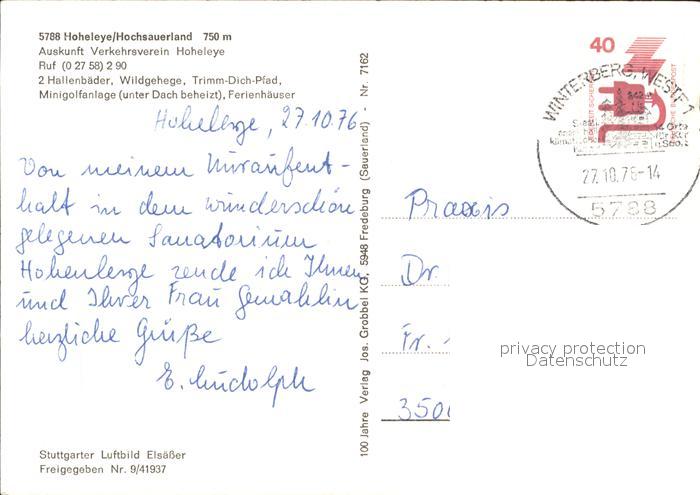 5788 Hoheleye/Hochsauerland 750 m
Auskunft Verkehrsverein Hoheleye
Ruf (0 27 58) 2 90
2 Hallenbäder, Wildgehege, Trimm-Dich-Pfad,
Minigolfanlage (unter Dach beheizt), Ferienhäuser
27.10.76
Von meinem
halt in dem wunderschön
gelegenen Sanatorium
sende ich Ihnen
und Ihrer Frau Gemahlin
herzliche Grüße
E. Rudolph
Stuttgarter Luftbild Elsäßer
Freigegeben Nr. 9/41937
100 Jahre Verlag Jos. Grobbel KG, 5948 Fredeburg (Sauerland) Nr. 7162
40
WINTERBERG, WESTF 1
27.10.76-14
5788
Praxis
Dr
Fr.
350
privacy protection
Datenschutz